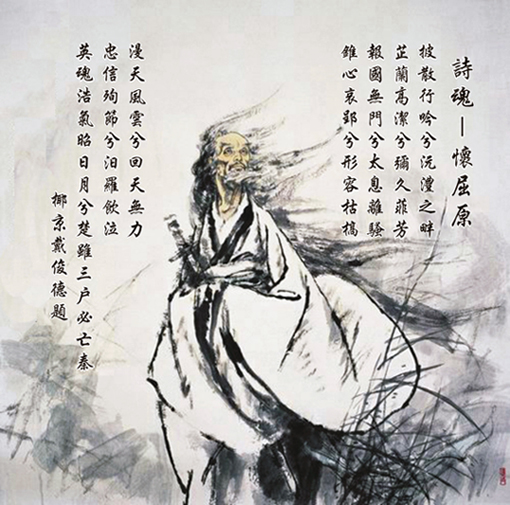 詩魂—懷屈原
披散行吟兮沅澧之畔
芷蘭高潔兮彌久菲芳
報國無門兮太息離騷
錐心哀郢兮形容枯槁
漫天風雲兮回天無力
忠信殉節兮汨羅飲泣
英魂浩氣昭日月兮楚雖三户必亡秦
椰京戴俊德題